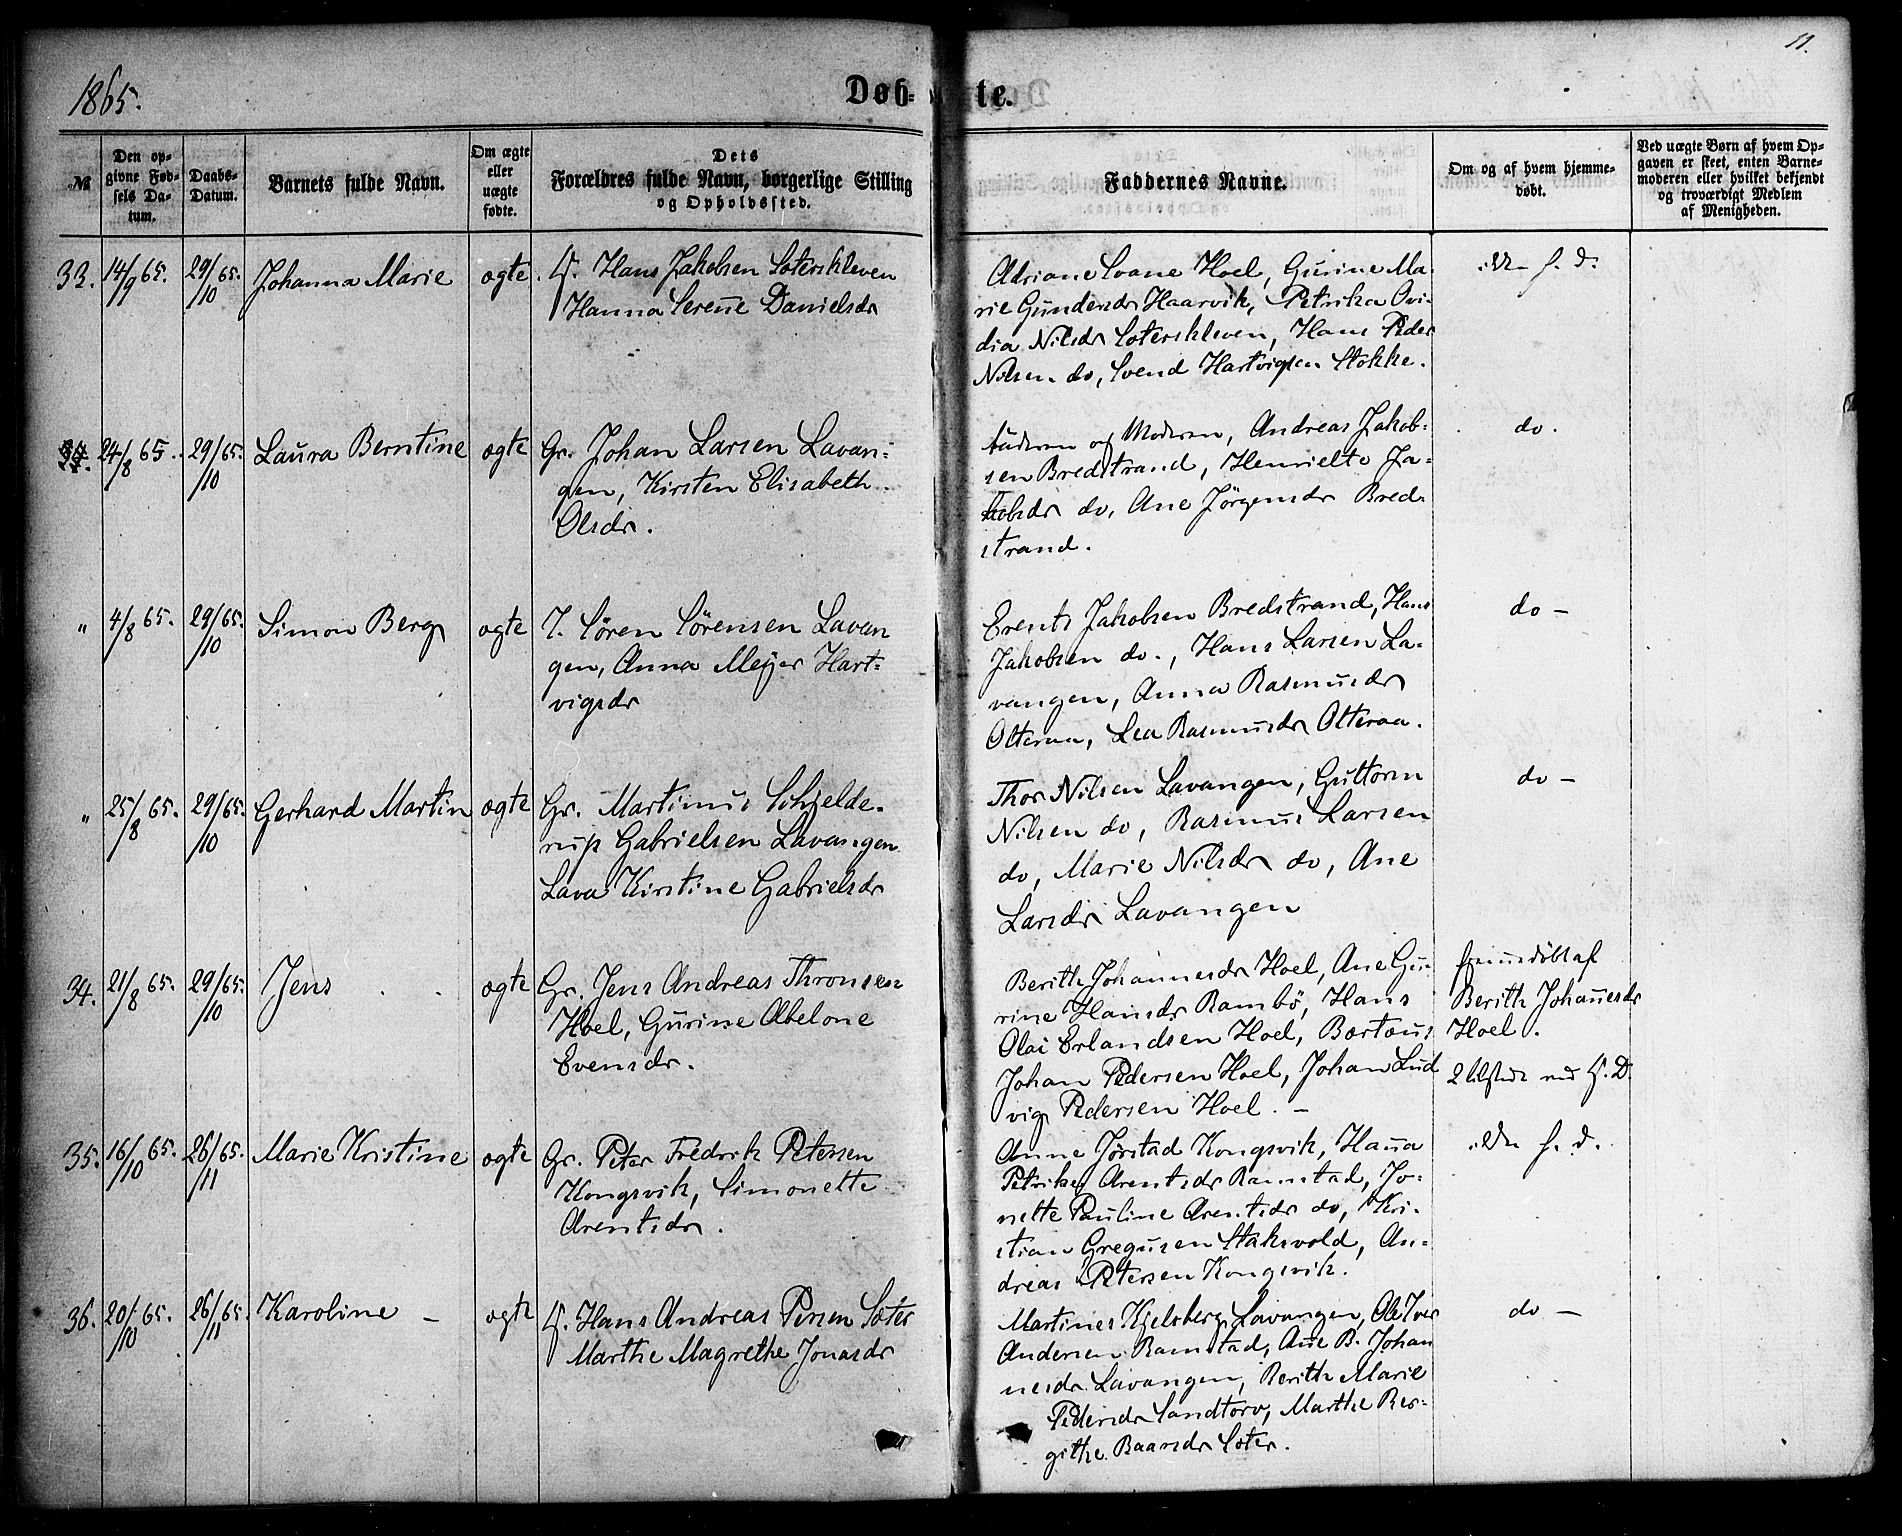 1865.
Døb-
te.
11.
№
Den op-
givne Fød-
sels Da-
tum.
Daabs-
Datum.
Barnets fulde Navn.
Om ægte
eller
uægte
fødte.
Dets
Forældres fulde Navn, borgerlige Stilling
og Opholdssted.
Faddernes Navne.
Om og af hvem hjemme-
døbt.
Ved uægte Børn af hvem Op-
gaven er skeet, enten Barne-
moderen eller hvilket bekjendt
og troværdigt Medlem
af Menigheden.
33. 14/9 65. 29/10 65. Johanna Marie ægte Hans Jakobsen Soterskleven
Hanna Serene Danielsdr
Adriane Hoel, Gurine Ma-
rie Gundersdr Haarvik, Petrika Ovi-
dia Nilsdr Soterskleven, Hans Peder
Nilsen do, Svend Hartvigsen Stokke.
24/8 65. 29/10 65. Laura Berntine ægte Gr. Johan Larsen Lavan-
gen, Kirsten Elisabeth
Olsdr.
Faderen og Moderen, Andreas Jakob-
sen Bredstrand, Henriette Ja-
kobsdr do, Ane Jørgensdr Bred-
strand.
do.
" 4/8 65. 29/10 65. Simon Berg ægte I. Sören Sörensen Lavan
gen, Anna Mejer Hart-
vigsdr
Erents Jakobsen Bredstrand, Hans
Jakobsen do., Hans Larsen La-
vangen, Anna Rasmusdr
Otteraa, Lea Rasmusdr Otteraa.
do –
" 25/8 65. 29/10 65. Gerhard Martin ægte Gr. Martinus Schjelde-
rup Gabrielsen Lavangen
Lava Kirstine Gabrielsdr
Thor Nilsen Lavangen, Guttorm
Nilsen do, Rasmus Larsen
do, Marie Nilsdr do, Ane
Larsdr Lavangen
do –
34. 21/8 65. 29/10 65. Jens ægte Gr. Jens Andreas Thronsen
Hoel, Gurine Abelone
Evensdr.
Berith Johannesdr Hoel, Ane Gu-
rine Hansdr Rambö, Hans
Olai Erlandsen Hoel, Bartæus
Johan Pedersen Hoel, Johan Lud
vig Pedersen Hoel. –
hjemmedöbt af
Berith Johannesdr
Hoel.
35. 16/10 65. 26/11 65. Marie Kristine ægte Gr. Peter Fredrik Petersen
Kongsvik, Simonette
Arentsdr.
Anne Jörstad Kongsvik, Hanna
Petrikке Arentsdr Ramstad, Jo-
nette Pauline Arentsdr do, Kri-
stian Gregusen Staksvold, An-
dreas Petersen Kongsvik.
36. 20/10 65. 26/11 65. Karoline – ægte Hans Andreas Persen Soter
Marthe Magrethe Jonasdr
Martines Kjelsberg Lavangen, Ole Iver
Andersen Ramstad, Ane B. Johan
nesdr Lavangen, Berith Marie
Pedersdr Sandtorv, Marthe Ber-
githe Baarsdr Soter.
do –